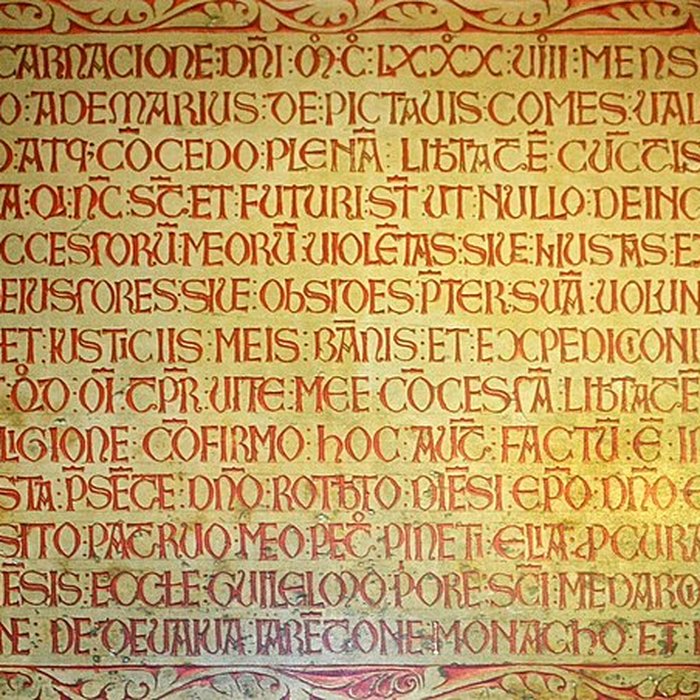 CARNACIONE:DÑI:M̊:C̊:LXXX̊:VIII:MENS
O:ADEMARIUS:DE:PICTAVIS:COMES:VAL
O:ATQ;CŌCEDO:PLENĀ:LIBTATĒ:CŪCTIS
A:QI:N̄C:ST̄:ET:FUTURI:ST̄:UT:NULLO:DEINC
CCESSORŪ:MEORŪ:VIOLĒTAS:SIVE:INIUSTAS:E
EIUSSORES:SIVE:OBSIDES:P̄TER:SUĀ:VOLUN
ET:IUSTICIIS:MEIS:BĀNIS:ET:EXPEDICIONI
QD̄:OĪ:TP̄R:VITE:MEE:CŌCESSĀ:LIBTATĒ
LIGIONE:CŌFIRMO:HOC:AUT̄:FACTŪ:Ē:II
STA:PSĒTE:DÑO:ROTBTO:DIĒSI:EP̄O:DÑO
SITO:PATRUO:MEO:PET̊:PINETI:ELIA:PCURA
ĒSIS:ECCLE:GUILELMO:PORE:SC̄I:MEDARD
NE:DE:DEUAIUA:TARĒTONE:MONACHO:ET: